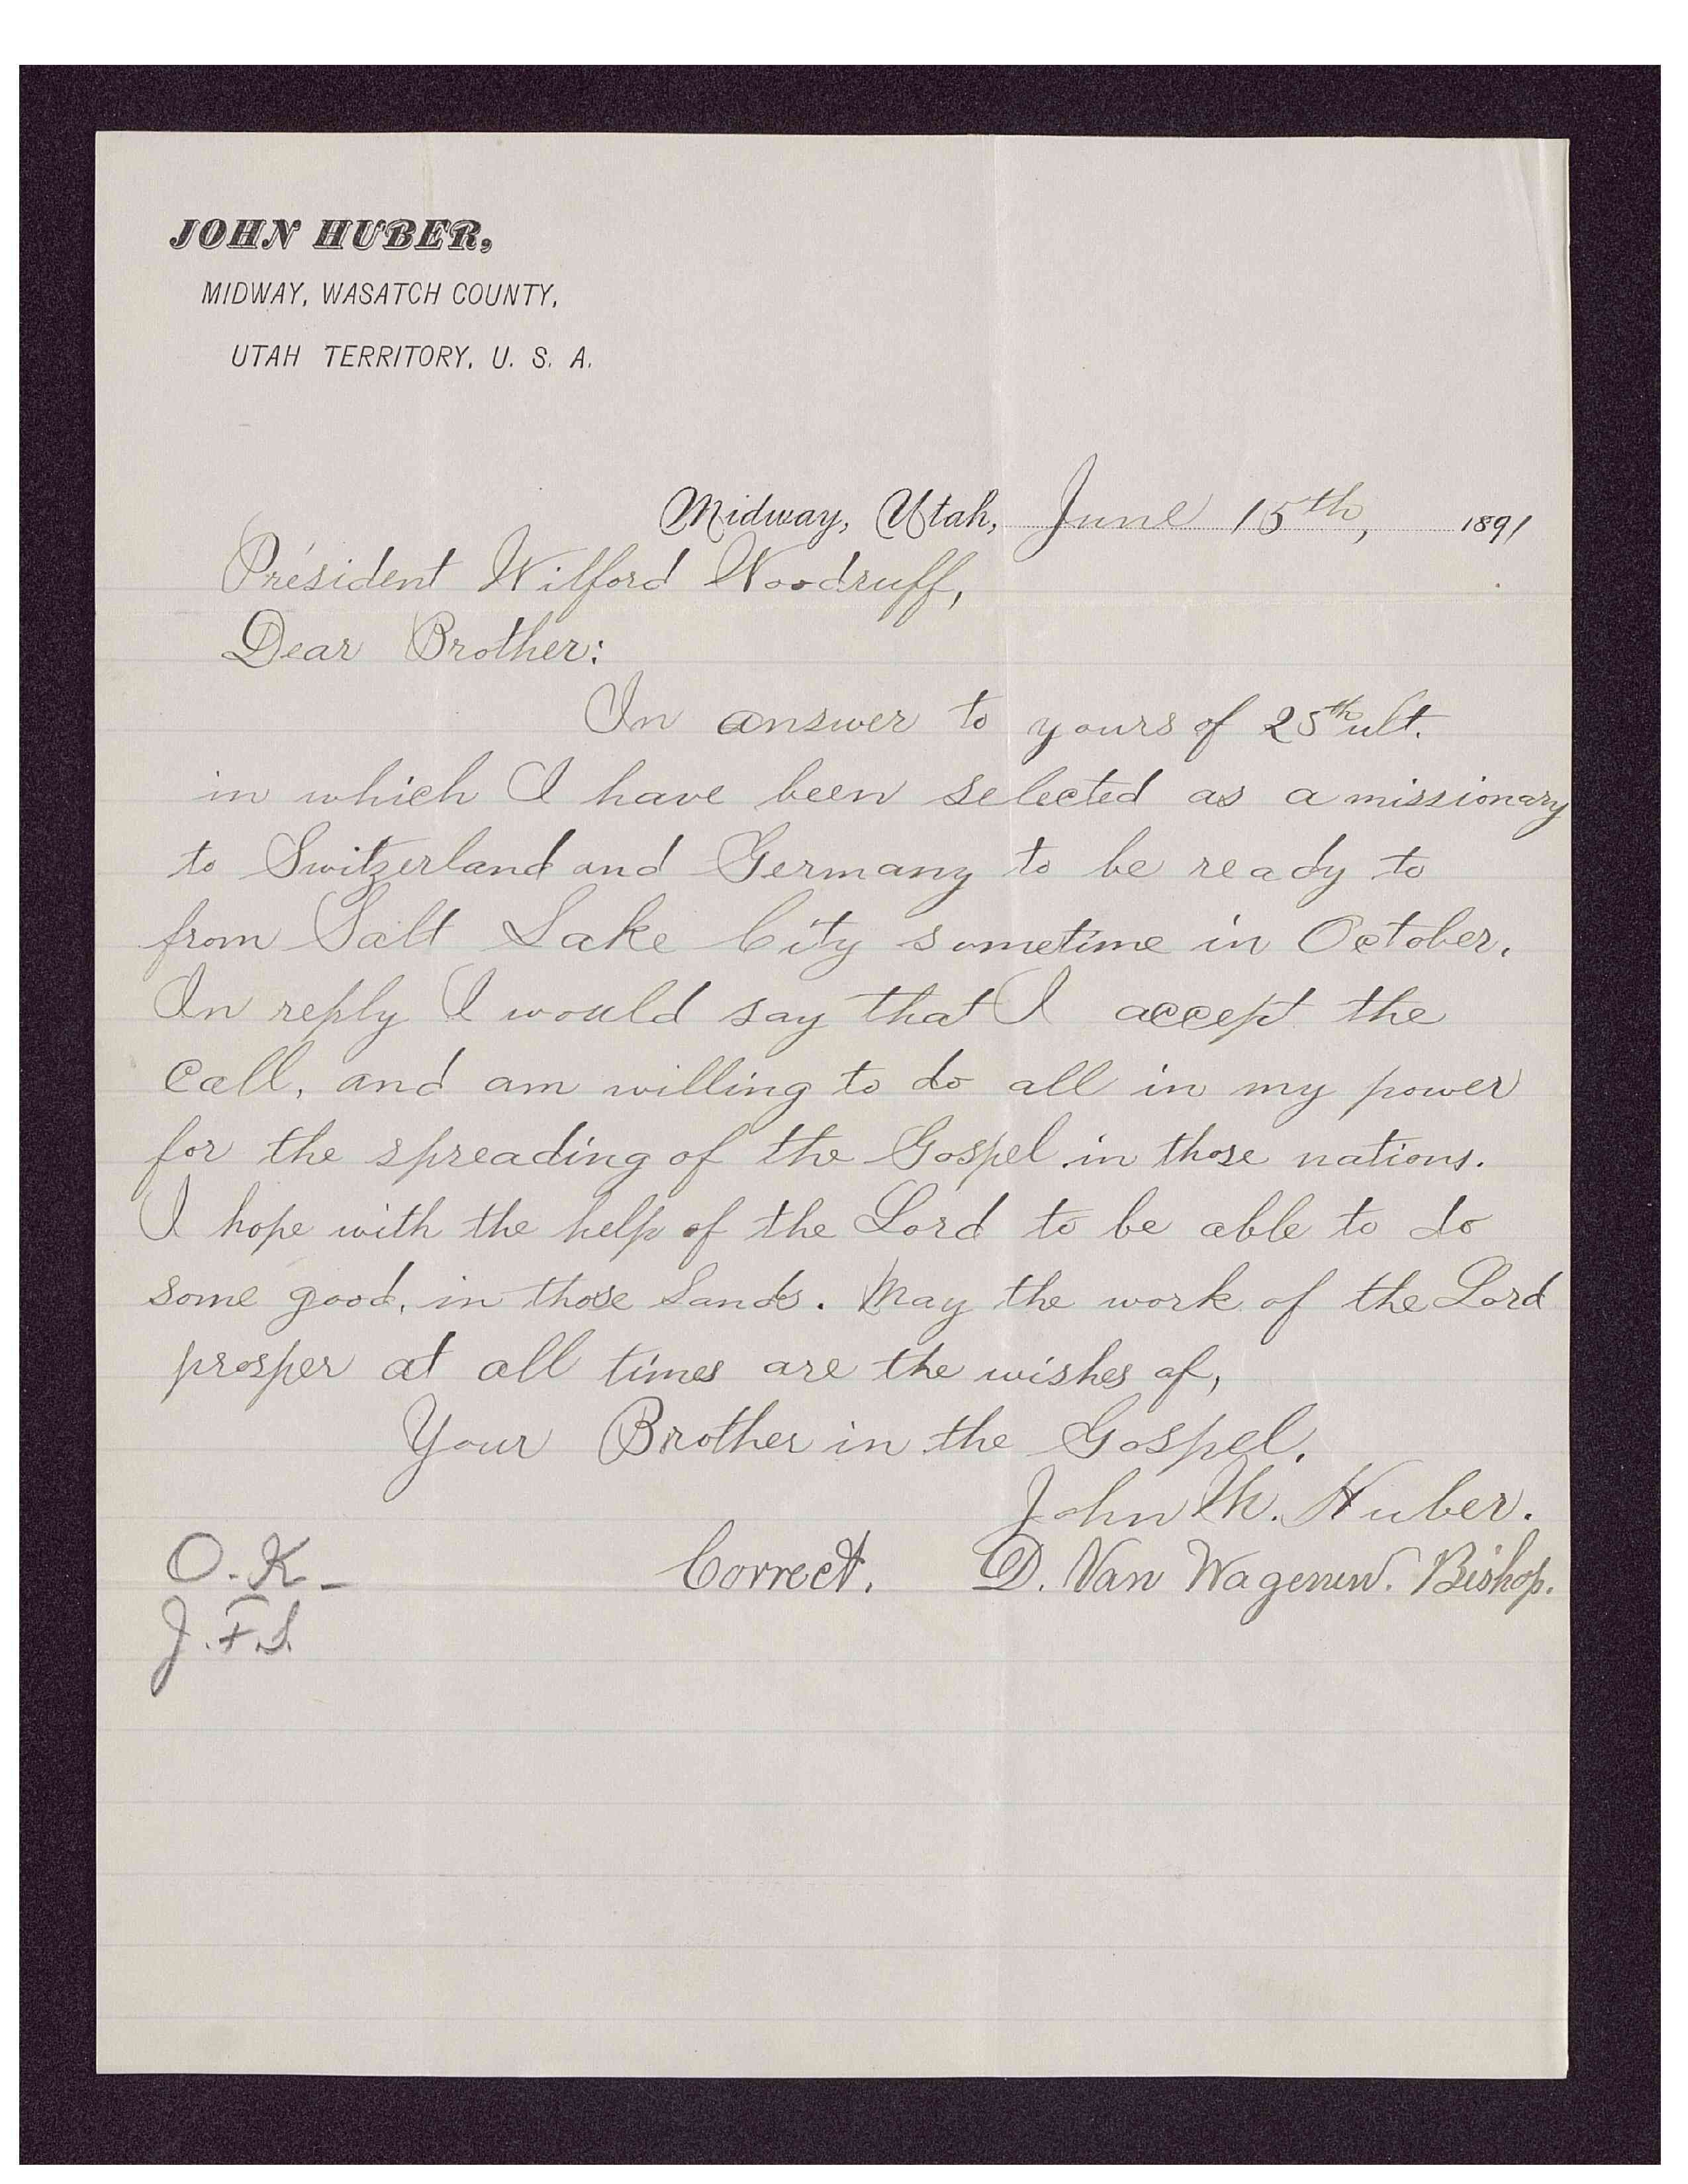 JOHN HUBER,
MIDWAY, WASATCH COUNTY,
UTAH TERRITORY, U. S. A.
Midway, Utah, June 15th, 1891
President Wilford Woodruff,
Dear Brother:
In answer to yours of 25th ult.
in which I have been selected as a missionary
to Switzerland and Germany to be ready to
from Salt Lake City sometime in October.
In reply I would say that I accept the
call, and am willing to do all in my power
for the spreading of the Gospel in those nations.
I hope with the help of the Lord to be able to do
some good, in those Lands. May the work of the Lord
prosper at all times are the wishes of,
Your Brother in the Gospel.
John M. Huber.
Correct. D. Van Wagenen. Bishop.
O.K-
J.F.S.